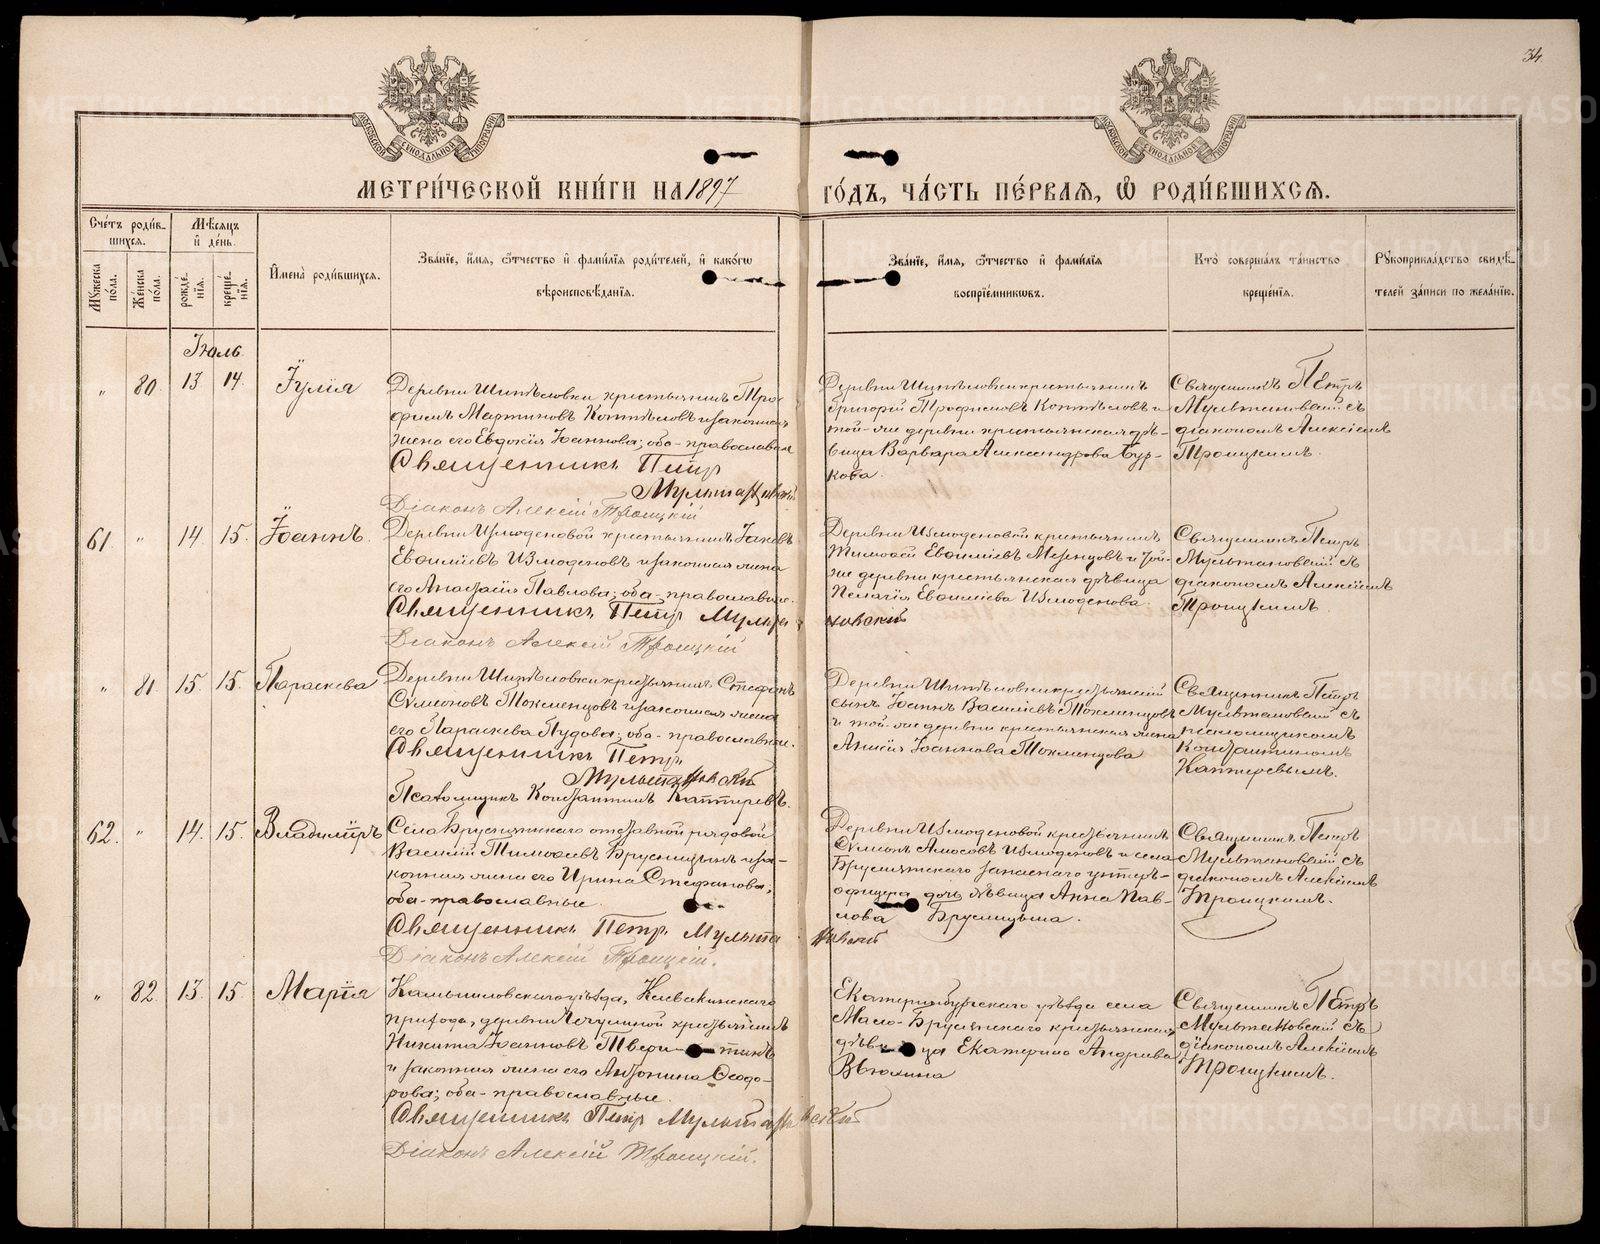 34.
МОСКОВСКОЙ СѴНОДАЛЬНОЙ ТИПОГРАФІИ
МОСКОВСКОЙ СѴНОДАЛЬНОЙ ТИПОГРАФІИ
МЕТРИ́ЧЕСКОЙ КНИ́ГИ НА 1897 ГО́ДЪ, ЧА́СТЬ ПЕ́РВАѦ, Ѡ҆ РОДИ́ВШИХСѦ.
Сче́тъ роди́в-
шихсѧ.
Мѹ́жеска по́ла.
Же́нска по́ла.
Мѣ́сѧцъ
и҆ де́нь.
рожде́нїѧ.
креще́нїѧ.
И҆мена̀ роди́вшихсѧ.
Зва́нїе, и҆́мѧ, ѻ҆́тчество и҆ фами́лїѧ роди́телей, и҆ како́гѡ
вѣроисповѣ́данїѧ.
Зва́нїе, и҆́мѧ, ѻ҆́тчество и҆ фами́лїѧ
воспрїе́мникѡвъ.
Кто̀ соверша́лъ та́инство
креще́нїѧ.
Рꙋкоприкла́дство свидѣ́-
телей за́писи по жела́нїю.
Іюль
" 80. 13. 14. Іулія
Деревни Шипѣловки крестьянинъ Тро-
фимъ Мартиновъ Коптѣловъ и законная
жена его Евдокія Іоаннова; оба-православн
Священникъ Петр
Мультановскій
Діаконъ Алексій Троицкій
Деревни Шипѣловки крестьянинъ
Григорій Трофимовъ Коптѣловъ и
той-же деревни крестьянская дѣ-
вица Варвара Александрова Бур-
кова.
Священникъ Петръ
Мультановскій съ
діакономъ Алексіемъ
Троицкимъ.
61. " 14. 15. Іоаннъ.
Деревни Измоденовой крестьянинъ Іаковъ
Евфиміевъ Измоденовъ и законная жена
его Анастасія Павлова; оба-православные.
Священникъ Петр Мульта
новскій
Діаконъ Алексій Троицкій
Деревни Измоденовой крестьянинъ
Тимофей Евфиміевъ Мезенцовъ и той-
же деревни крестьянская дѣвица
Пелагія Евфиміева Измоденова.
Священникъ Петръ
Мультановскій съ
діакономъ Алексіемъ
Троицкимъ.
" 81. 15. 15. Параскева
Деревни Шипѣловки крестьянинъ Стефанъ
Сѵмеоновъ Токменцовъ и законная жена
его Параскева Пудова; оба-православные.
Священникъ Петръ
Мультановскій
Псаломщикъ Константинъ Каптеревъ.
Деревни Шипѣловки крестьянскій
сынъ Іоаннъ Василіевъ Токменцовъ
и той-же деревни крестьянская жена
Анисія Іоаннова Токменцова
Священникъ Петръ
Мультановскій съ
псаломщикомъ
Константиномъ
Каптеревымъ.
62. " 14. 15. Владиміръ
Села Бруснятскаго отставной рядовой
Василій Тимофеевъ Брусницынъ и за-
конная жена его Ирина Стефанова,
оба-православные.
Священникъ Петръ Мульта
новскій
Діаконъ Алексій Троицкій.
Деревни Измоденовой крестьянинъ
Сѵмеонъ Амосовъ Измоденовъ и села
Бруснятскаго запаснаго унтеръ-
офицера дочь дѣвица Анна Пав-
лова Брусницына.
Священникъ Петръ
Мультановскій съ
діакономъ Алексіемъ
Троицкимъ.
" 82. 13. 15. Марія
Камышловскаго уѣзда, Клевакинскаго
прихода, деревни Чечулиной крестьянинъ
Никита Іоанновъ Твери-тинъ
и законная жена его Антонина Ѳеодо-
рова; оба-православные.
Священникъ Петръ Мультановскій
Діаконъ Алексій Троицкій.
Екатеринбургскаго уѣзда села
Мало-Брусянскаго крестьянская
дѣвица Екатерина Андреева
Вьюхина
Священникъ Петръ
Мультановскій съ
діакономъ Алексіемъ
Троицкимъ.
METRIKI.GASO-URAL.RU